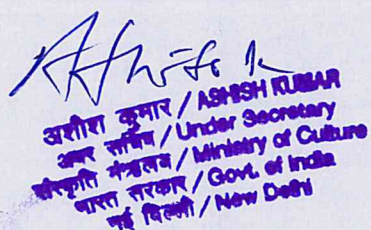 Ashish k
अशीश कुमार / ASHISH KUMAR
अवर सचिव / Under Secretary
संस्कृति मंत्रालय / Ministry of Culture
भारत सरकार / Govt. of India
नई दिल्ली / New Delhi